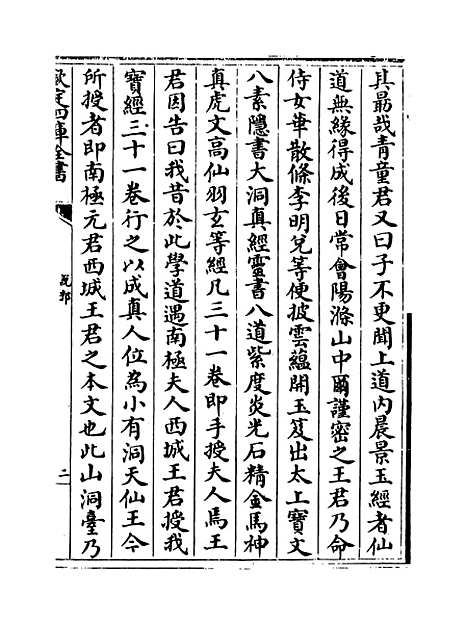 其最哉青童君又曰子不更聞上道內晨景玉經者仙
道無緣得成後日常會陽滌山中爾謹密之王君乃命
侍女華散條李明兌等便披雲蘊開玉笈出太上寶文
八素隱書大洞真經靈書八道紫度炎光石精金馬神
真虎文高仙羽玄等經凡三十一卷即手授夫人焉王
君因告曰我昔於此學道遇南極夫人西城王君授我
寶經三十一卷行之以成真人位為小有洞天仙王今
所授者即南極元君西城王君之本文也此山洞臺乃
欽定四庫全書
說郛
二